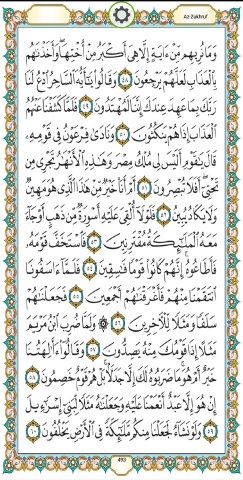 Az-Zukhruf
وَمَا نُرِيهِم مِّنْ ءَايَةٍ إِلَّا هِىَ أَكْبَرُ مِنْ أُخْتِهَا وَأَخَذْنَٰهُم
بِٱلْعَذَابِ لَعَلَّهُمْ يَرْجِعُونَ ٤٨ وَقَالُوا۟ يَٰٓأَيُّهَ ٱلسَّاحِرُ ٱدْعُ لَنَا
رَبَّكَ بِمَا عَهِدَ عِندَكَ إِنَّنَا لَمُهْتَدُونَ ٤٩ فَلَمَّا كَشَفْنَا عَنْهُمُ
ٱلْعَذَابَ إِذَا هُمْ يَنكُثُونَ ٥٠ وَنَادَىٰ فِرْعَوْنُ فِى قَوْمِهِۦ
قَالَ يَٰقَوْمِ أَلَيْسَ لِى مُلْكُ مِصْرَ وَهَٰذِهِ ٱلْأَنْهَٰرُ تَجْرِى مِن
تَحْتِىٓ أَفَلَا تُبْصِرُونَ ٥١ أَمْ أَنَا۠ خَيْرٌ مِّنْ هَٰذَا ٱلَّذِى هُوَ مَهِينٌ
وَلَا يَكَادُ يُبِينُ ٥٢ فَلَوْلَآ أُلْقِىَ عَلَيْهِ أَسْوِرَةٌ مِّن ذَهَبٍ أَوْ جَآءَ
مَعَهُ ٱلْمَلَٰٓئِكَةُ مُقْتَرِنِينَ ٥٣ فَٱسْتَخَفَّ قَوْمَهُۥ
فَأَطَاعُوهُ إِنَّهُمْ كَانُوا۟ قَوْمًا فَٰسِقِينَ ٥٤ فَلَمَّآ ءَاسَفُونَا
ٱنتَقَمْنَا مِنْهُمْ فَأَغْرَقْنَٰهُمْ أَجْمَعِينَ ٥٥ فَجَعَلْنَٰهُمْ
سَلَفًا وَمَثَلًا لِّلْءَاخِرِينَ ٥٦ ۞ وَلَمَّا ضُرِبَ ٱبْنُ مَرْيَمَ
مَثَلًا إِذَا قَوْمُكَ مِنْهُ يَصِدُّونَ ٥٧ وَقَالُوٓا۟ ءَأَٰلِهَتُنَا
خَيْرٌ أَمْ هُوَ مَا ضَرَبُوهُ لَكَ إِلَّا جَدَلًۢا بَلْ هُمْ قَوْمٌ خَصِمُونَ ٥٨
إِنْ هُوَ إِلَّا عَبْدٌ أَنْعَمْنَا عَلَيْهِ وَجَعَلْنَٰهُ مَثَلًا لِّبَنِىٓ إِسْرَٰٓءِيلَ
٥٩ وَلَوْ نَشَآءُ لَجَعَلْنَا مِنكُم مَّلَٰٓئِكَةً فِى ٱلْأَرْضِ يَخْلُفُونَ ٦٠
493